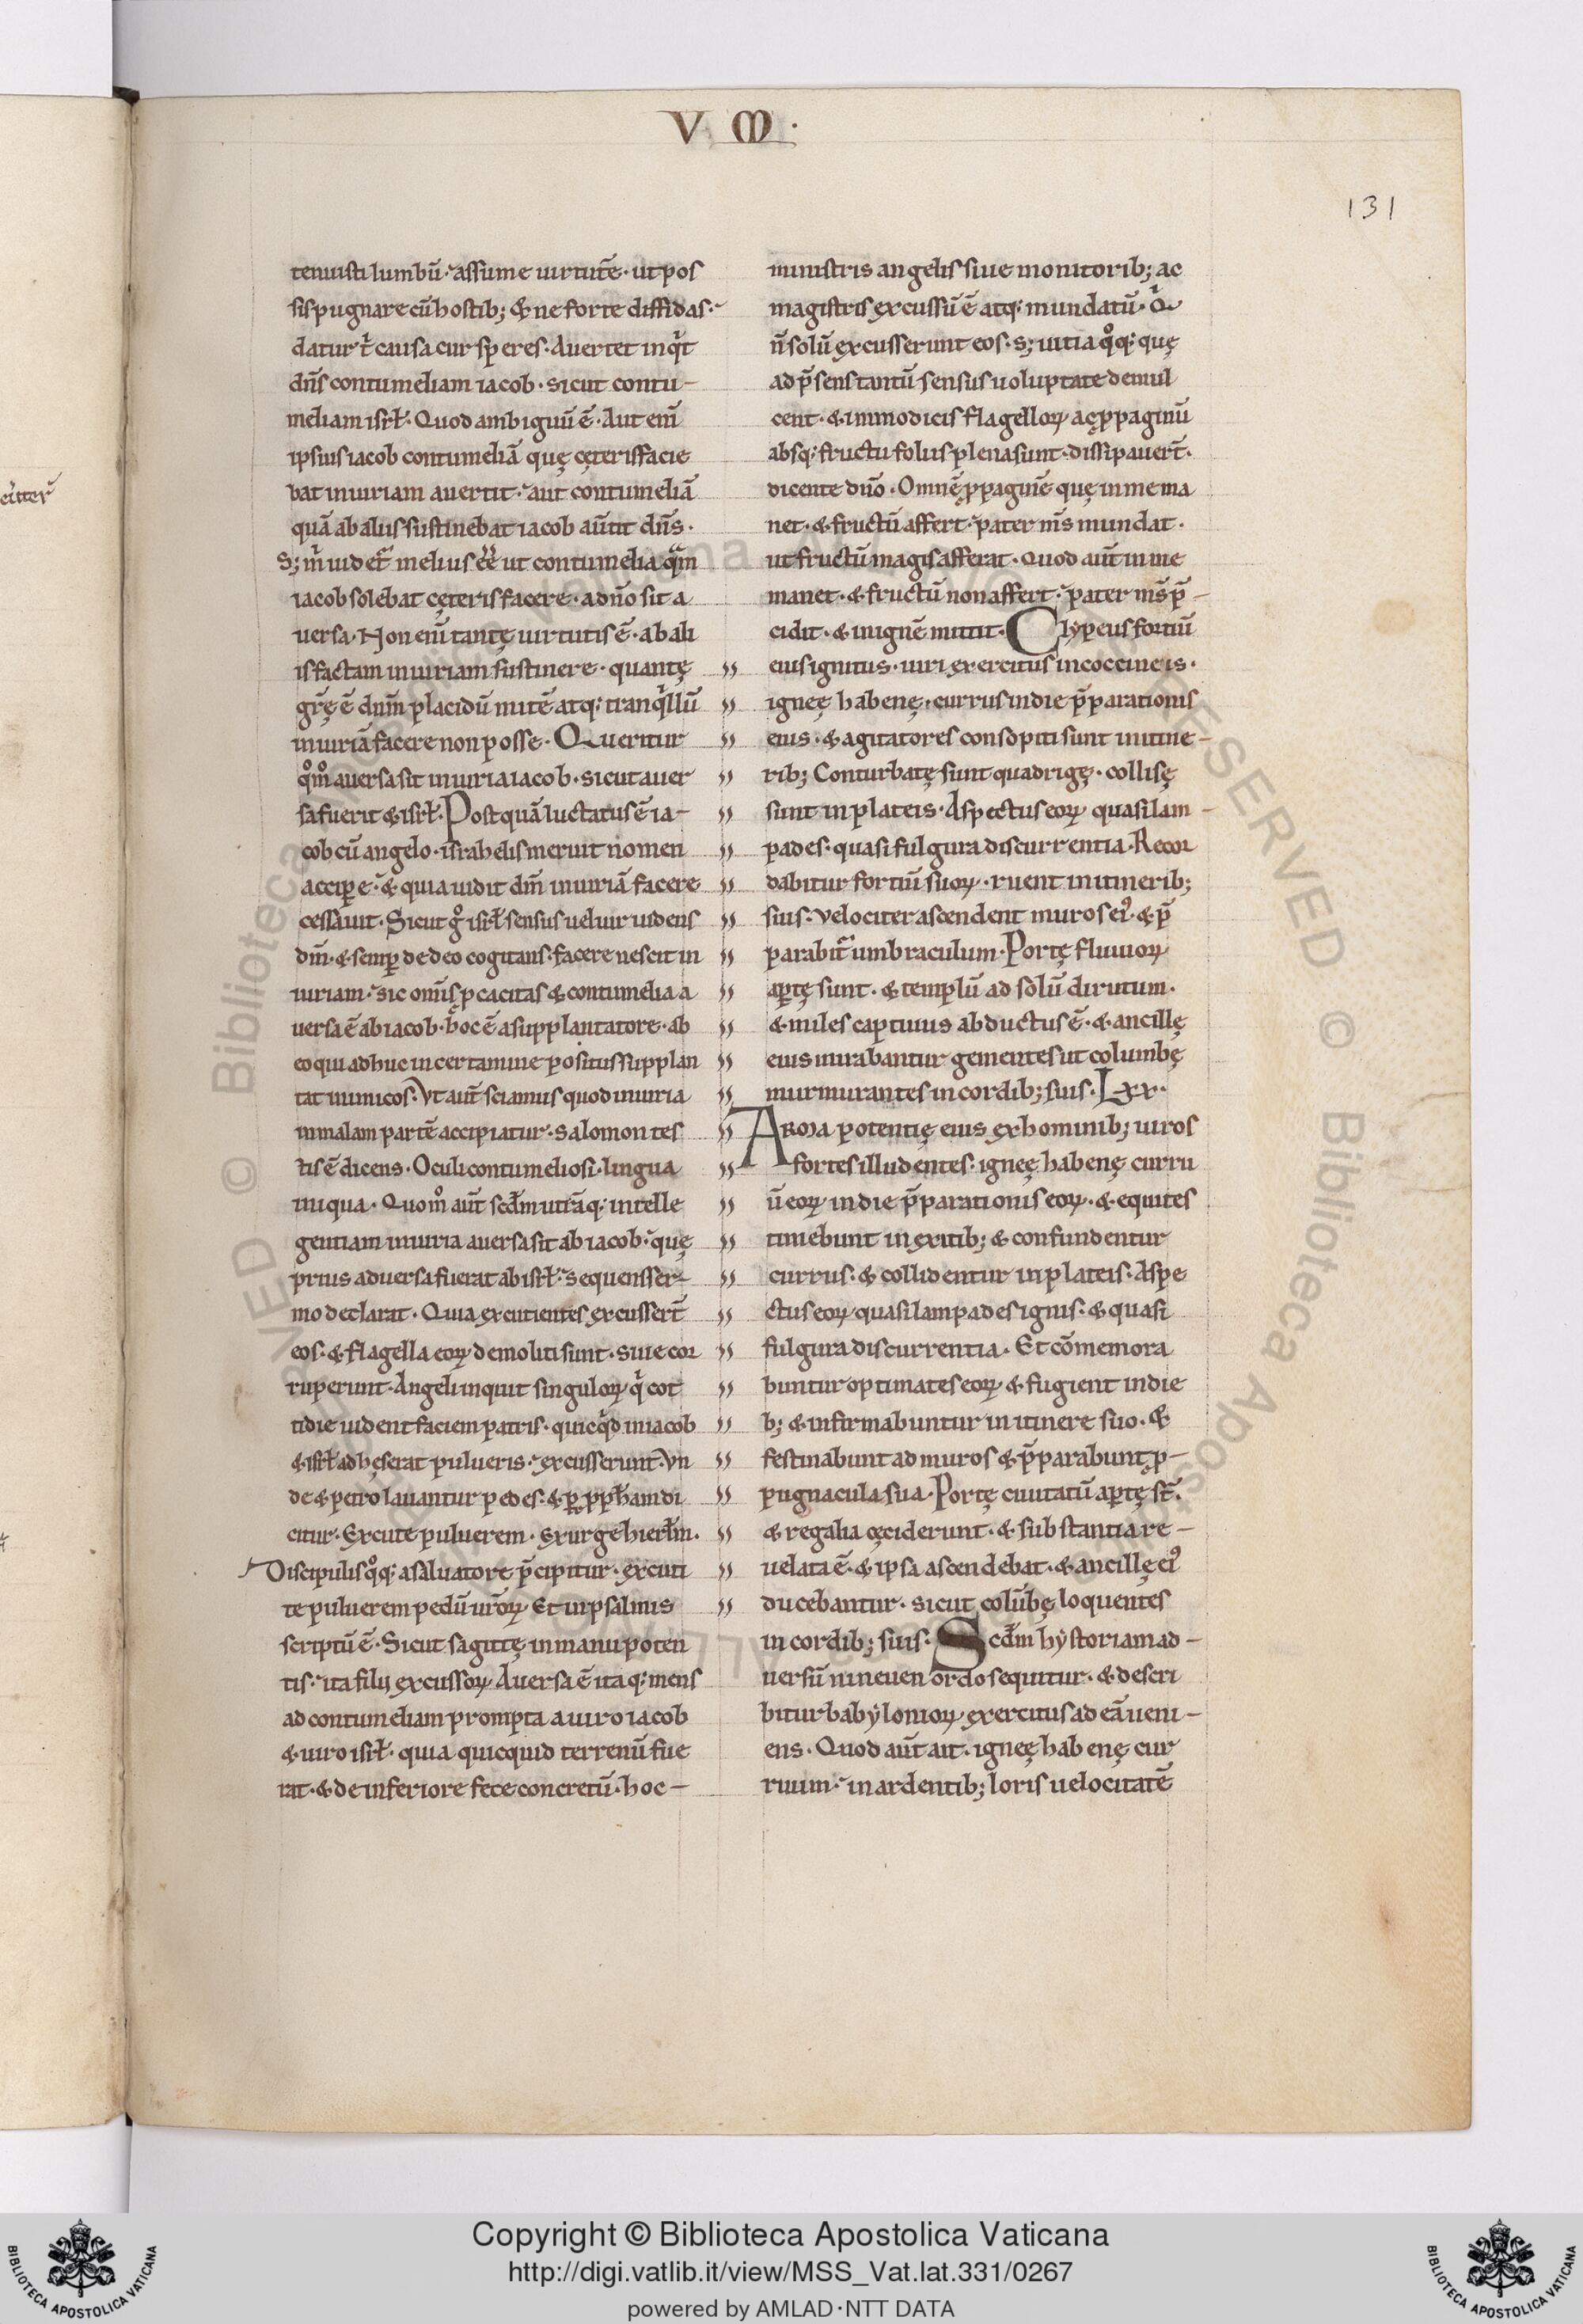 V M ·
131
tenuisti lumbū · assume uirtutē · ut pos
sis pugnare cū hostib; & ne forte diffidas ·
datur t̄ causa cur speres · Auertet inqͥt
dn̄s contumeliam iacob · sicut contu-
meliam isrł · Quod ambiguū ē · Aut enī
ipsius iacob contumeliā quę cęteris facie
bat iniuriam auertit · aut contumeliā
quā ab aliis sustinebat iacob au̅tit dn̄s ·
S; m̄ uidet᷑ melius ēē ut contumelia qᵃm
iacob solebat cęteris facere · a dn̄o sit a
uersa · Non enī tantę uirtutis ē · ab ali
is factam iniuriam sustinere · quantę
gr̄ę ē dn̄m placidū mitē atq; tranqͥllū
iniuriā facere non posse · Queritur
qᵒmᵒ auersa sit iniuria iacob · sicut auer
sa fuerit & isrł · Postquā luctatus ē ia-
cob cū angelo · israhelis meruit nomen
accipe · & quia uidit dm̄ iniuriā facere
cessauit · Sicut gᵒ isrł sensus uel uir uidens
dm̄ · & semp de deo cogitans · facere nescit in
iuriam · sic omīs pcacitas & contumelia a
uersa ē ab iacob · hoc ē a supplantatore · ab
eo qui adhuc in certamine positus supplan
tat inimicos · Vt aut̄ sciamus quod iniuria
in malam partē accipiatur · salomon tes
tis ē dicens · Oculi contumeliosi · lingua
iniqua · Quomᵒ aut̄ scd̄m utrāq; intelle
gentiam iniuria auersa sit ab iacob · quę
prius aduersa fuerat ab isrł · sequens ser-
mo declarat · Quia excutientes excussert̄
eos · & flagella eoꝝ demoliti sunt · siue cor
ruperunt · Angeli inquit singuloꝝ qͥ cot
tidie uident faciem patris · quicqͥd in iacob
& isrł adhęserat pulueris · excusserunt · Vn
de & petro lauantur pedes · & p pph̄am di
citur · Excute puluerem · exurge hierłm ·
Discipulis qᵒq; a saluatore p̄cipitur · excuti
te puluerem pedū ur̄oꝝ · Et in psalmis
scriptū ē · Sicut sagittę in manu poten
tis · ita filii excussoꝝ · Auersa ē itaq; mens
ad contumeliam prompta a uiro iacob
& uiro isrł · quia quicquid terrenū fue
rat · & de inferiore fece concretū · hoc -
ministris angelis siue monitorib; ac
magistris excussū ē atq; mundatū · Qͥ
n̄ solū excusserunt eos · s; uitia qᵒq; quę
ad p̄sens tantū sensus uoluptate demul
cent · & immodicis flagelloꝝ ac ppaginū
absq; fructu foliis plena sunt · dissipauert̄ ·
dicente dn̄o · Omnē ppaginē quę in me ma
net · & fructū affert · pater m̄s mundat ·
ut fructū magis afferat · Quod aut̄ in me
manet · & fructū non affert · pater m̄s p̄-
cidit · & in ignē mittit · Clypeus fortiū
eius ignitus · uiri exercitus in coccineis ·
igneę habenę · currus in die p̄parationis
eius · & agitatores consopiti sunt in itine-
rib; Conturbatę sunt quadrigę · collisę
sunt in plateis · Aspectus eoꝝ quasi lam-
pades · quasi fulgura discurrentia · Recor
dabitur fortiū suoꝝ · ruent in itinerib;
suis · Velociter ascendent muros eiꝰ · & p̄
parabit᷑ umbraculum · Portę fluuioꝝ
aptę sunt · & templū ad solū dirutum ·
& miles captiuus abductus ē · & ancillę
eius minabantur gementes ut columbę
murmurantes in cordib; suis · Lxx ·
Arma potentię eius ex hominib; uiros
fortes illudentes · igneę habenę curru
ū eoꝝ in die p̄parationis eoꝝ · & equites
timebunt in exitib; & confundentur
currus · & collidentur in plateis · Aspe
ctus eoꝝ quasi lampades ignis · & quasi
fulgura discurrentia · Et cōmemora
buntur optimates eoꝝ & fugient in die
b; & infirmabuntur in itinere suo · &
festinabunt ad muros & p̄parabunt p-
pugnacula sua · Portę ciuitatū aptę st̄ ·
& regalia cęciderunt · & substantia re-
uelata ē · & ipsa ascendebat · & ancillę eiꝰ
ducebantur · sicut colūbę loquentes
in cordib; suis · Scd̄m hystoriam ad-
uersū nineuen ordo sequitur · & descri
bitur babylonioꝝ exercitus ad eā ueni-
ens · Quod aut̄ ait · igneę habenę cur
ruum · in ardentib; loris uelocitatē
Copyright © Biblioteca Apostolica Vaticana
http://digi.vatlib.it/view/MSS_Vat.lat.331/0267
powered by AMLAD·NTT DATA
BIBLIOTECA APOSTOLICA VATICANA
BIBLIOTECA APOSTOLICA VATICANA